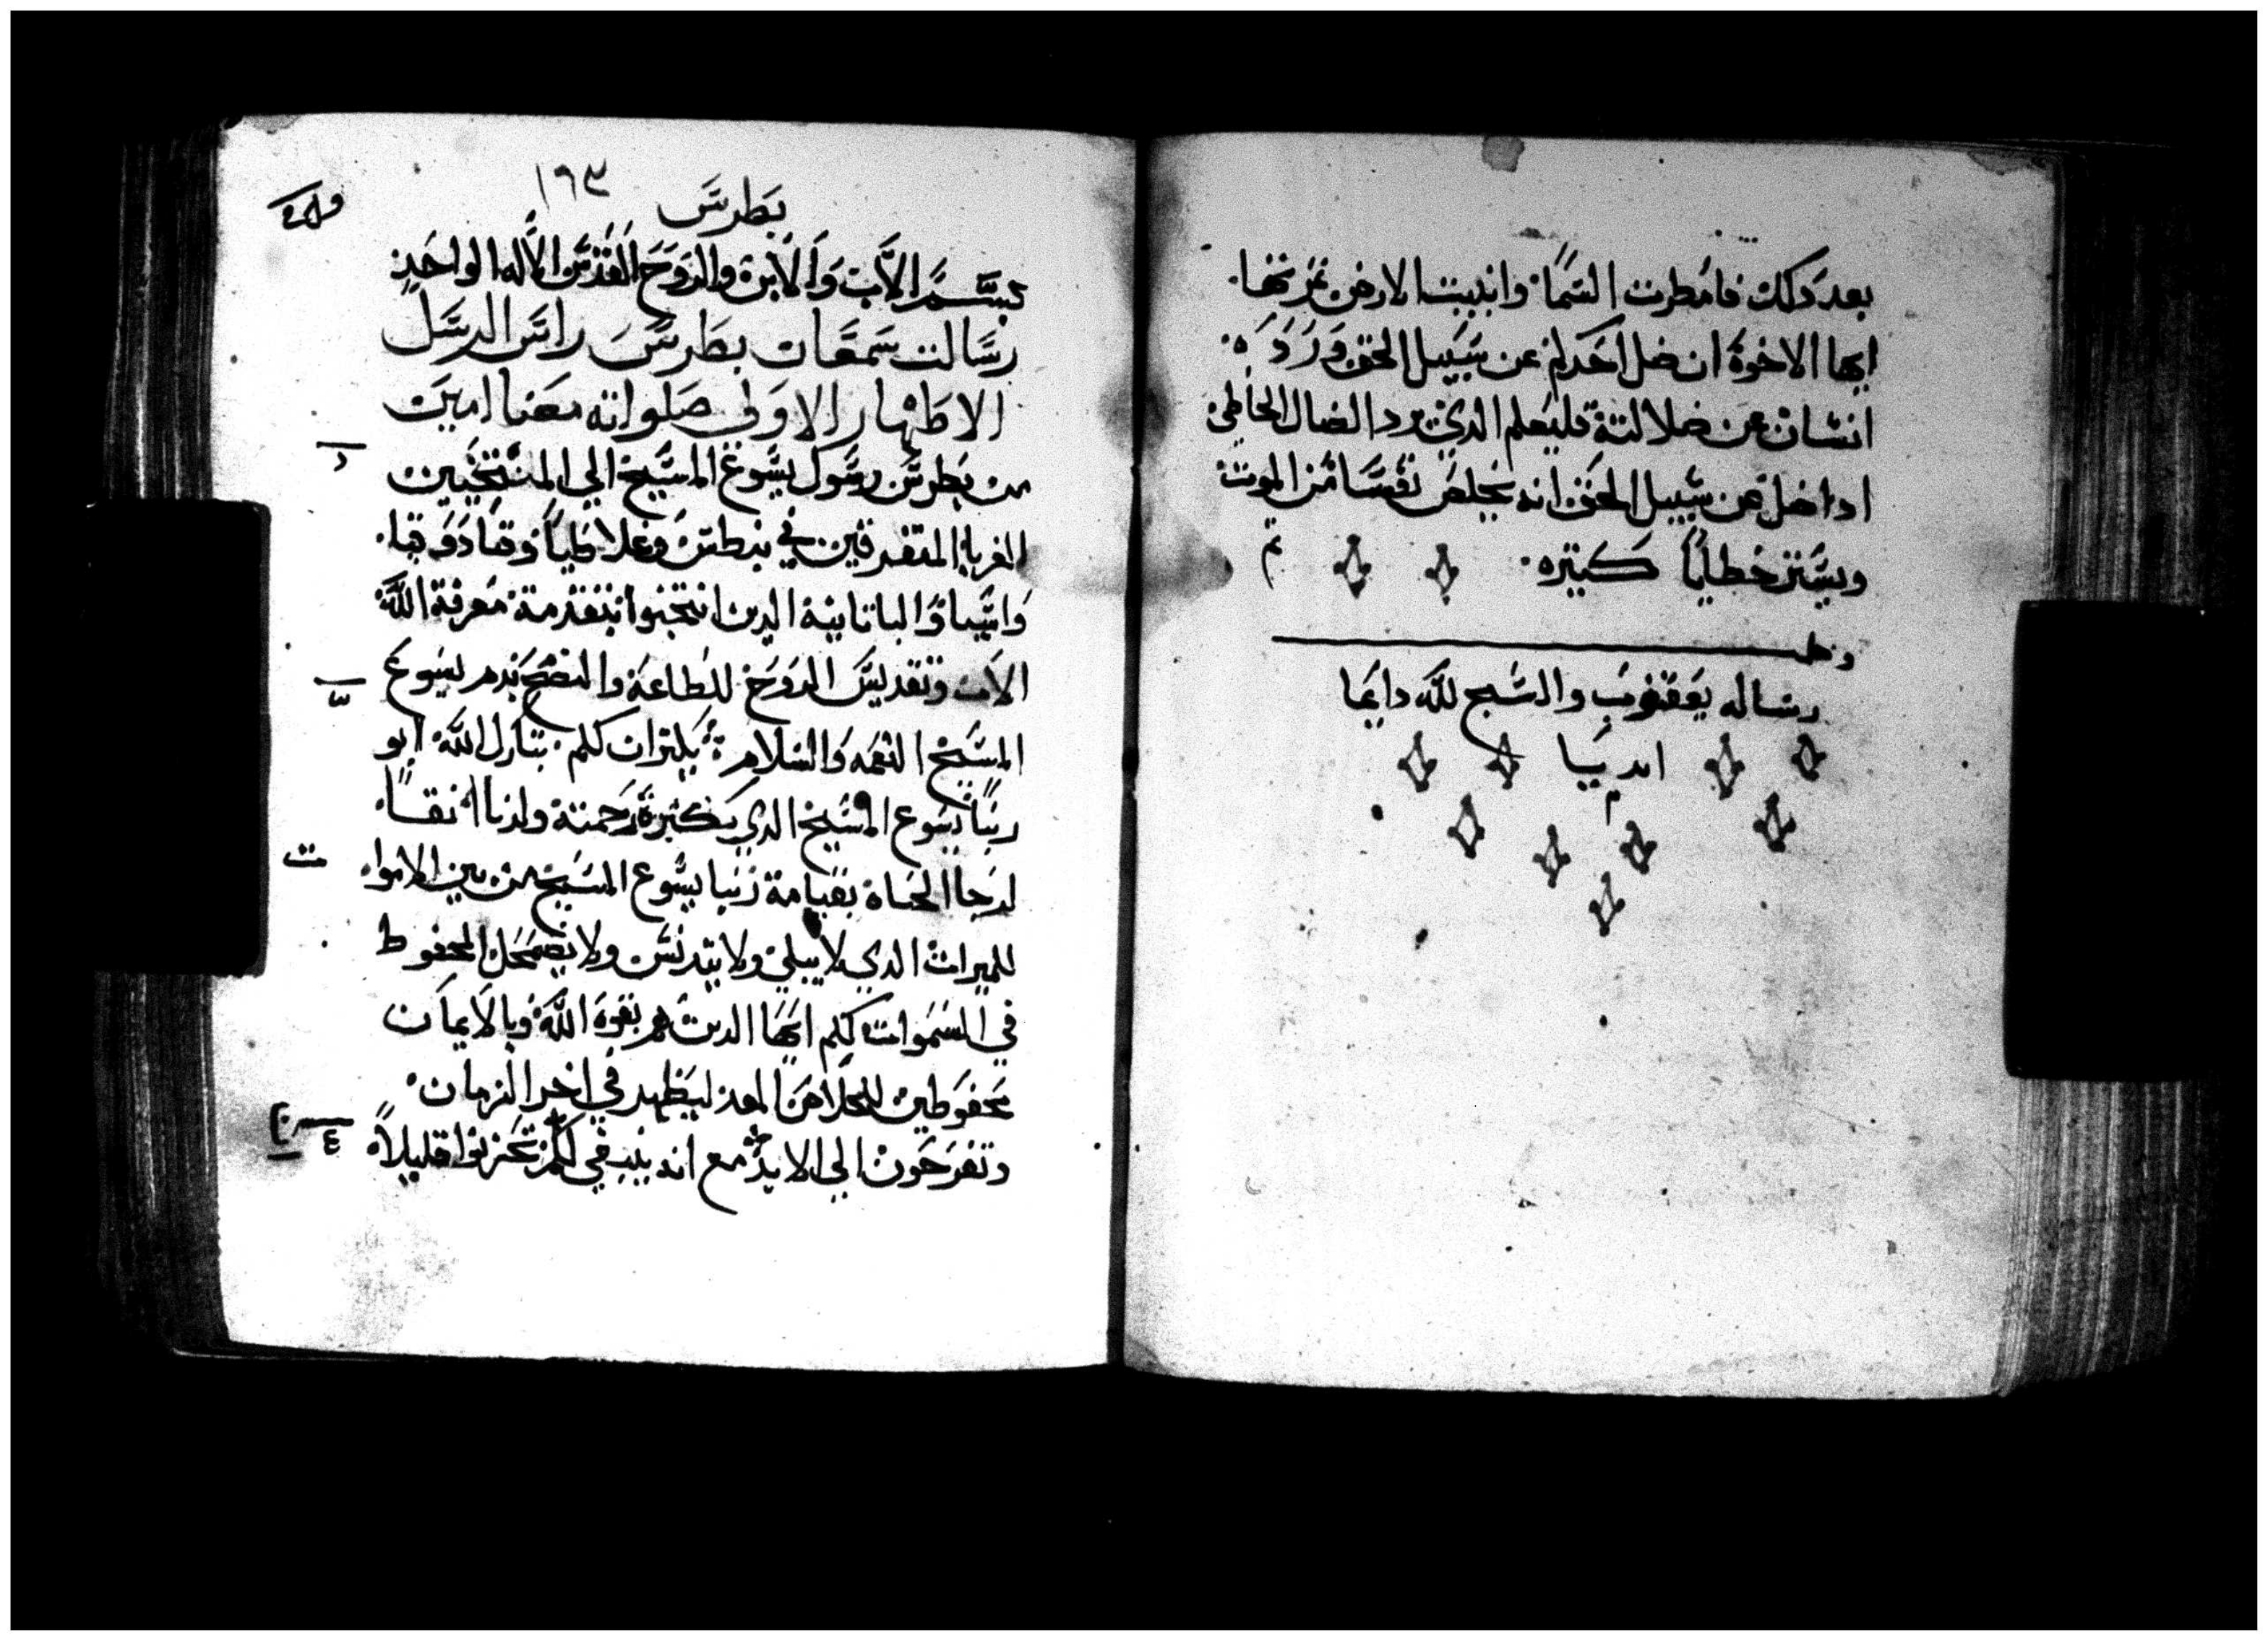 بعد دلك فامطرت السما وانبتت الارض ثمرتها
ايها الاخوة ان ضل احدكم عن سبيل الحق ورده
انسان عن ضلالتة فليعلم الدي يرد الضال الخاطي
ادا ضل عن سبيل الحق انه يخلص نفسا من الموت
ويستر خطايا كتيره تم
رساله يعقوب والسبح لله دايما
ابديا
١٦٣
بطرس
بسم الاب والابن والروح القدس الاله الواحد
رسالت سمعان بطرس راس الرسل
الاطهار الاولي صلواته معنا امين
من بطرس رسول يسوع المسيح الي المنتخبين
الغربا المتفرقين في بنطس وغلاطيا وقبادوقيا
واسيا والباتانية الدين انتخبوا بتقدمة معرفة الله
الاب وتقديس الروح للطاعة والنضح بدم يسوع
المسيح النعمه والسلام يكتران لكم تبارك الله ابو
ربنا يسوع المسيح الدي بكترة رحمتة ولدنا انفسا
لرجا الحياة بقيامة ربنا يسوع المسيح من بين الاموا
للميرات الدي لا يبلي ولا يتدنس ولا يضمحل المحفوط
في السموات لكم ايها الدين هم بقوة الله وبالايمان
محفوطين للخلاص المعد ليظهر في اخر الزمان
وتفرحون الي الابد مع انه ينبغي لكم تحزنوا قليلاً